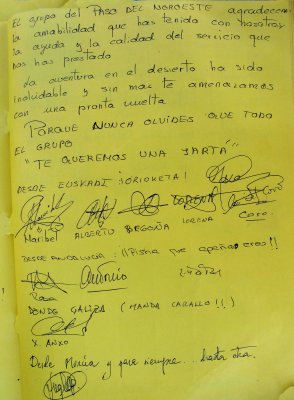 EL grupo del PASO DEL NOROESTE agradecemos
la amabilidad que has tenido con nosotros
la ayuda y la calidad del servicio que
nos has prestado
La aventura en el desierto ha sido
inoludable y sin mas te amenazamos
con una pronta vuelta
PORQUE NUNCA OLVIDES QUE TODO
EL GRUPO
"TE QUEREMOS UNA JARTÁ"
DESDE EUSKADI
Maribel ALBERTO BEGOÑA LORENA Coro
DESDE ANDALUCIA: ¡¡Pisha que
Rosa Antonio
DONDE GALIZA (MANDA CARALLO!!)
X. ANXO
Desde Murcia y para siempre... hasta otra.